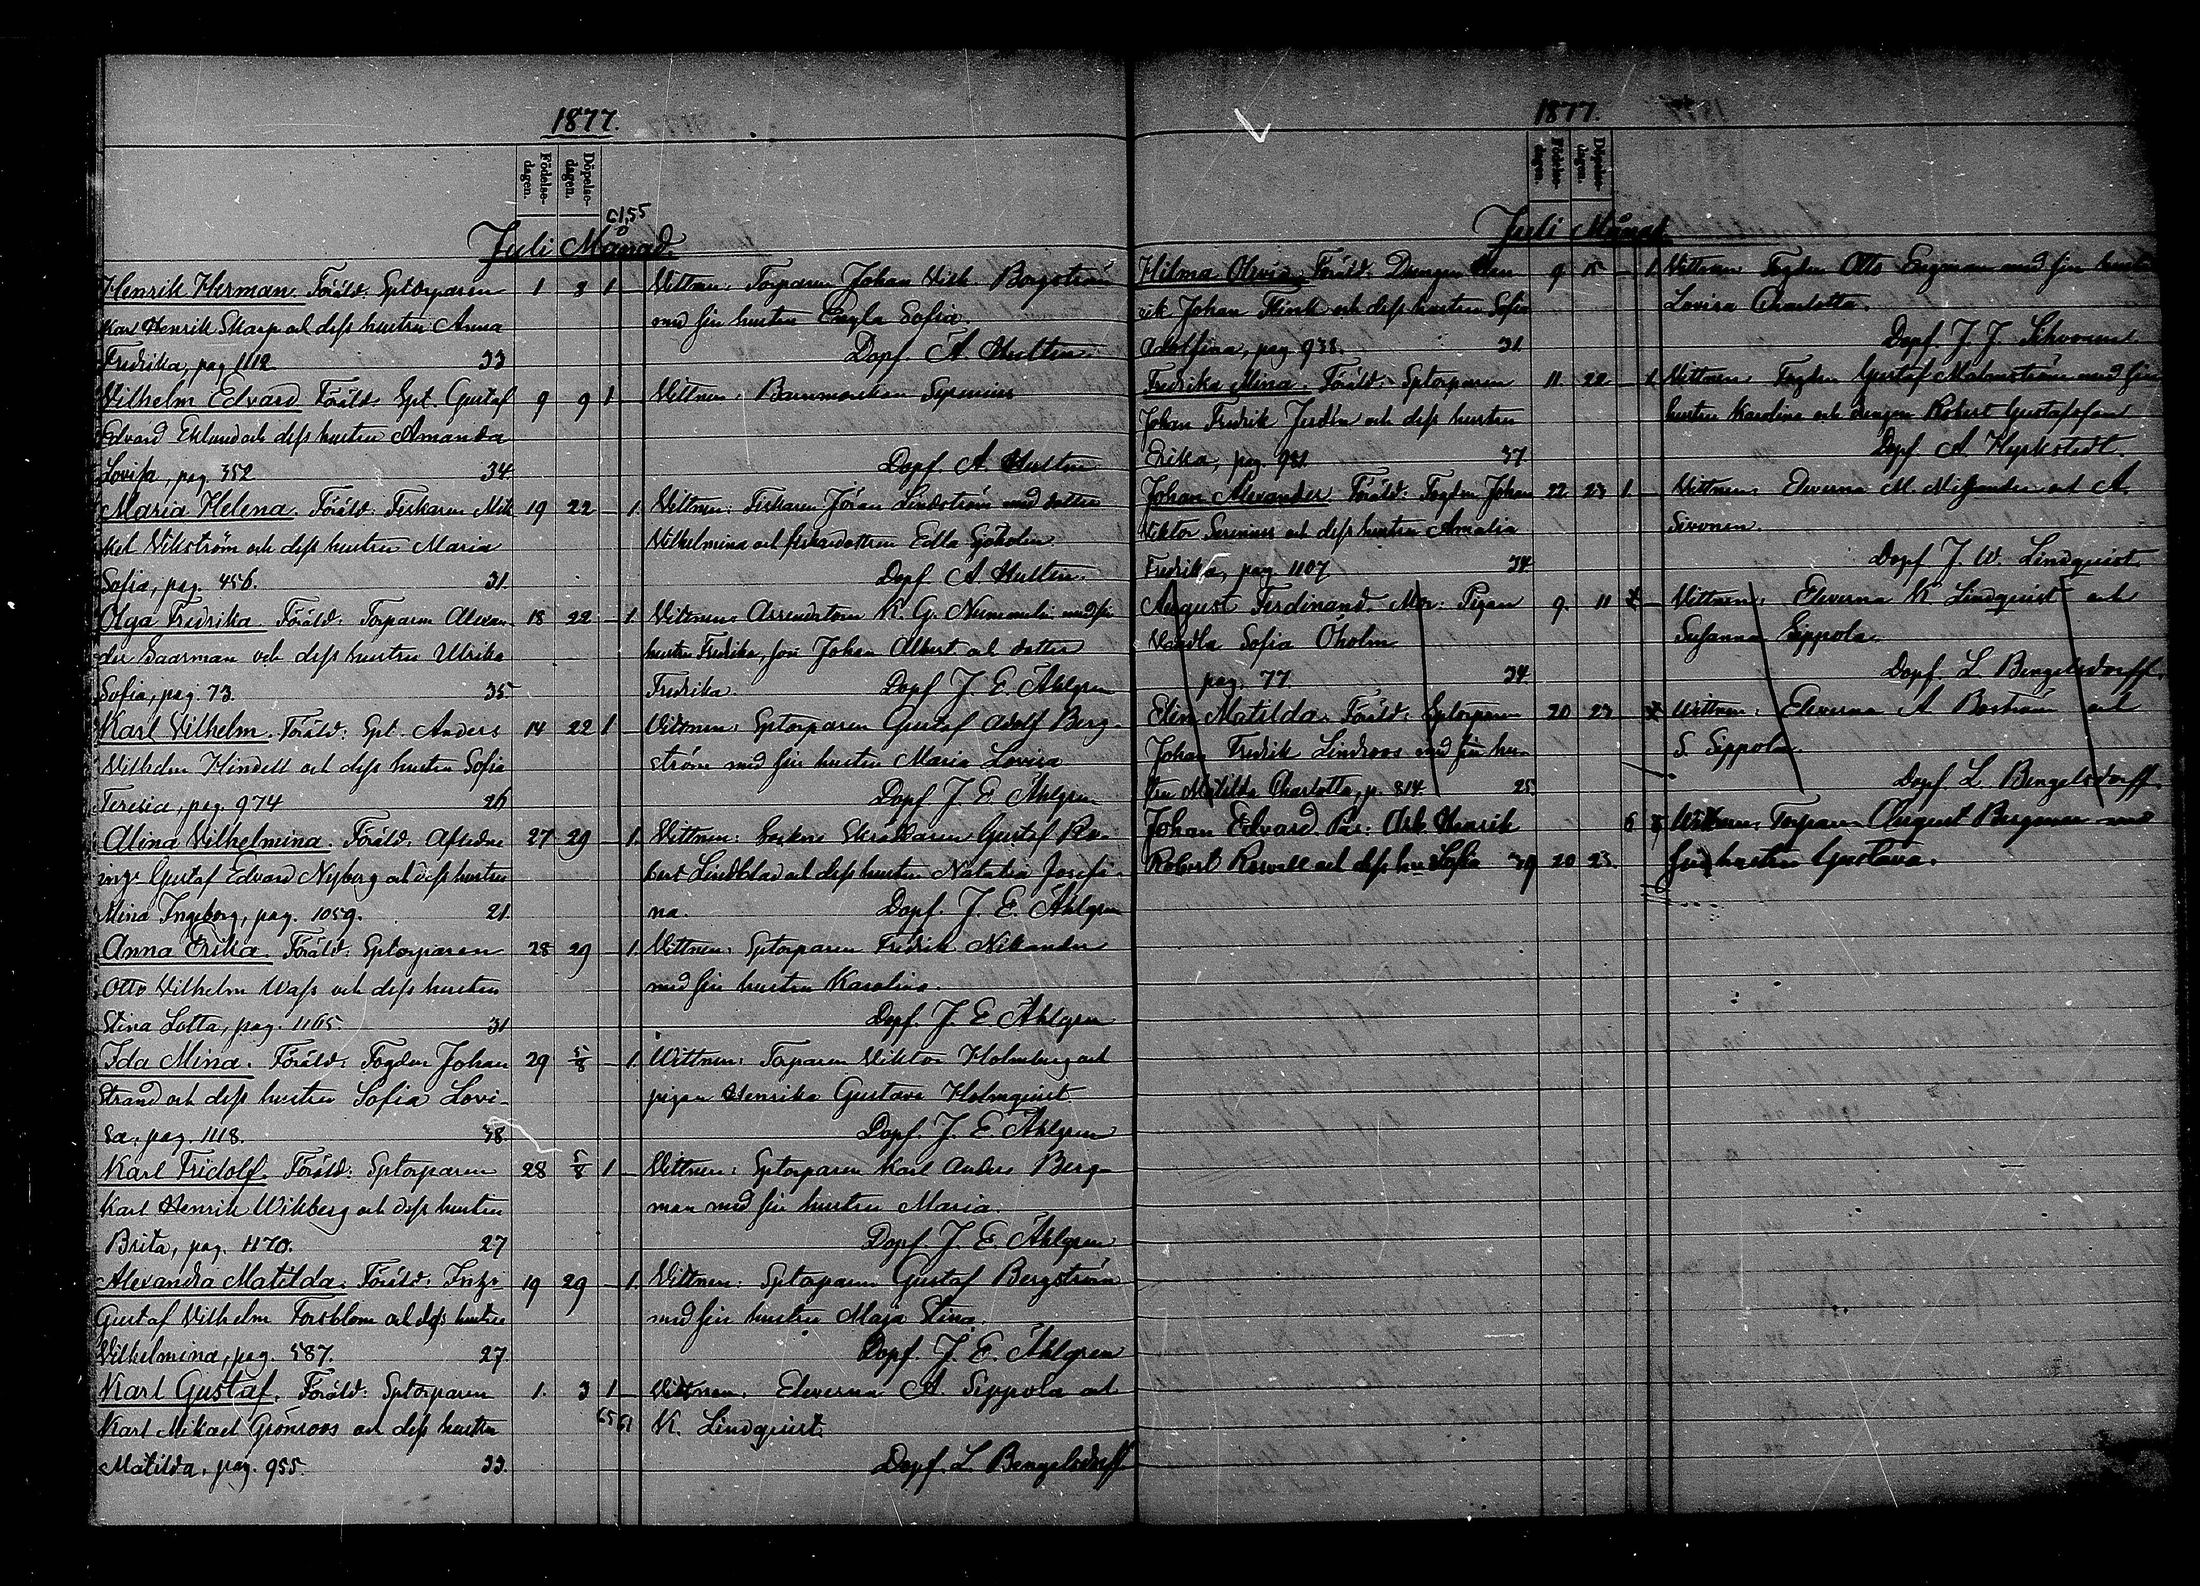 1877.
Födelse-
dagen.
Döpelse-
dagen.
61,55
Juli Månad.
Henrik Herman. Föräld: Sptorparen 1 8 1 —
Karl Henrik Skarp och dess hustru Anna
Fredrika, pag 1112 33
Vittnen: Torparen Johan Vilh. Borgström
med sin hustru Engla Sofia
Dopf. A. Hultin.
Vilhelm Edvard Föräld. Spt. Gustaf 9 9 1 —
Edvard Eklund och dess hustru Amanda
Lovisa, pag. 352 34
Vittnen: Barnmorskan Serenius
Dopf. A. Hultin
Maria Helena. Föräld: Fiskaren Mik 19 22 — 1.
kel Vikström och dess hustru Maria
Sofia, pag. 456. 31
Vittnen: Fiskaren Jöran Lindström med dotter
Vilhelmina och fiskaredottren Edla Sjöholm
Dopf A. Hultin.
Olga Fredrika. Föräld: Torparen Alexan- 18 22 — 1.
der Saarman och dess hustru Ulrika
Sofia, pag. 73. 35
Vittnen: Arrendatorn K. G. Nummelin med sin
hustru Fredrika, son Johan Albert och dotter
Fredrika. Dopf J. E. Åhlgren
Karl Vilhelm. Föräld: Spt. Anders 14 22 1 —
Vilhelm Hindell och dess hustru Sofia
Teresia, pag. 974 26
Vittnen: Sptorparen Gustaf Adolf Berg-
ström med sin hustru Maria Lovisa
Dopf J. E. Åhlgren
Alina Vilhelmina. Föräld: Aftedne 27 29 — 1.
Gustaf Edvard Nyberg och dess hustru
Mina Ingeborg, pag. 1059. 21.
Vittnen: Sockne Skräddaren Gustaf Ro-
bert Lindblad och dess hustru Natalia Josefi-
na. Dopf. J. E. Åhlgren
Anna Erika. Föräld: Sptorparen 28 29 — 1.
Otto Vilhelm Wass och dess hustru
Stina Lotta, pag. 1165. 31
Vittnen: Sptorparen Fredrik Nikander
med sin hustru Karolina.
Dopf. J. E. Åhlgren
Ida Mina. Föräld: Fogden Johan 29 5/8 — 1.
Strand och dess hustru Sofia Lovi-
sa, pag. 1118. 38.
Vittnen: Torparen Viktor Holmberg och
pigan Henrika Gustava Holmquist.
Dopf. J. E. Åhlgren
Karl Fridolf. Föräld: Sptorparen 28 5/8 1 —
Karl Henrik Wikberg och dess hustru
Brita, pag. 1170. 27
Vittnen: Sptorparen Karl Anders Berg-
man med sin hustru Maria.
Dopf J. E. Åhlgren
Alexandra Matilda. Föräld: Inhi 19 29 — 1.
Gustaf Vilhelm Forsblom och dess hustru
Vilhelmina, pag. 587. 27.
Vittnen: Sptorparen Gustaf Bergström
med sin hustru Maja Stina.
Dopf. J. E. Åhlgren
Karl Gustaf. Föräld: Sptorparen 1. 3 1 —
Karl Mikael Grönroos och dess hustru 65 61
Matilda, pag. 955. 33.
Vittnen: Eleverna A. Sippola och
K. Lindquist.
Dopf. L. Bengelsdorff
1877.
Födelse-
dagen.
Döpelse-
dagen.
Juli Månad.
Hilma Olivia. Föräld: Drengen Hen 9 15 — 1
rik Johan Flink och dess hustru Sofia
Adolfina, pag 938. 31.
Vittnen: Fogden Otto Engman med sin hustru
Lovisa Charlotta.
Dopf. J. J.
Fredrika Mina. Föräld: Sptorparen 11. 22 — 1
Johan Fredrik Jerdén och dess hustru
Erika, pag. 981. 37
Vittnen: Fogden Gustaf Malmström med sin
hustru Karolina och drengen Robert Gustafsson
Dopf. A. Hyrkstedt.
Johan Alexander Föräld: Fogden Johan 22 23 1. —
Viktor Serenius och dess hustru Amalia
Fredrika, pag 1107 34
Vittnen: Eleverna M. och A.
Sivonen.
Dopf J. W. Lindquist.
August Ferdinand. Mor: Pigan 9. 11 —
Vendla Sofia Öholm
pag. 77. 34
Vittnen: Eleverna K Lindquist och
Susanna Sippola.
Dopf. L. Bengelsdorff.
Elin Matilda. Föräld: Sptorparen 20 23 —
Johan Fredrik Lindroos med sin hu-
stru Matilda Charlotta, p. 814. 25.
Vittnen: Eleverna A Boström och
S. Sippola.
Dopf. L. Bengelsdorff.
Johan Edvard Par: Arb. Henrik 6
Robert Rosvall och dess hu Sofia 39 20 23
Vittnen: Torparen August Bergman med
sin hustru Gustava.